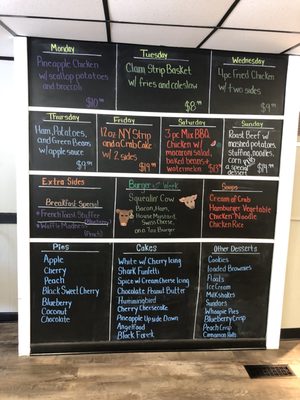 Monday
Pineapple Chicken
w/ scallop potatoes
and broccoli
$10
Tuesday
Clam Strip Basket
w/ fries and coleslaw
$8
Wednesday
4pc Fried Chicken
w/ two sides
$9
Thursday
Ham, Potatoes,
and Green Beans
w/ apple sauce
$9
Friday
12oz NY Strip
and a Crab Cake
w/ 2 sides
$19
Saturday
3 pc Mix BBQ
Chicken w/
macaroni salad,
baked beans +
watermelon
$13
Sunday
Roast Beef w/
mashed potatoes,
stuffing, noodles,
corn
a special
dessert
Extra Sides
Breakfast Special
French Toast Stuffer
Waffle Madness
Burger of Week
Squealer Cow
Bacon, Ham,
House Mustard,
Swiss Cheese
on 7oz Burger
Soups
Cream of Crab
Hamburger Vegetable
Chicken Noodle
Chicken Rice
Pies
Apple
Cherry
Peach
Black Sweet Cherry
Blueberry
Coconut
Chocolate
Cakes
White w/ Cherry Icing
Shark Funfetti
Spice w/ Cream Cheese Icing
Chocolate Peanut Butter
Hummingbird
Cherry Cheesecake
Pineapple Upside Down
Angelfood
Black Forest
Other Desserts
Cookies
Loaded Brownies
Floats
Ice Cream
Milkshakes
Sundaes
Whoopie Pies
Blueberry Crisp
Peach Crisp
Cinnamon Rolls